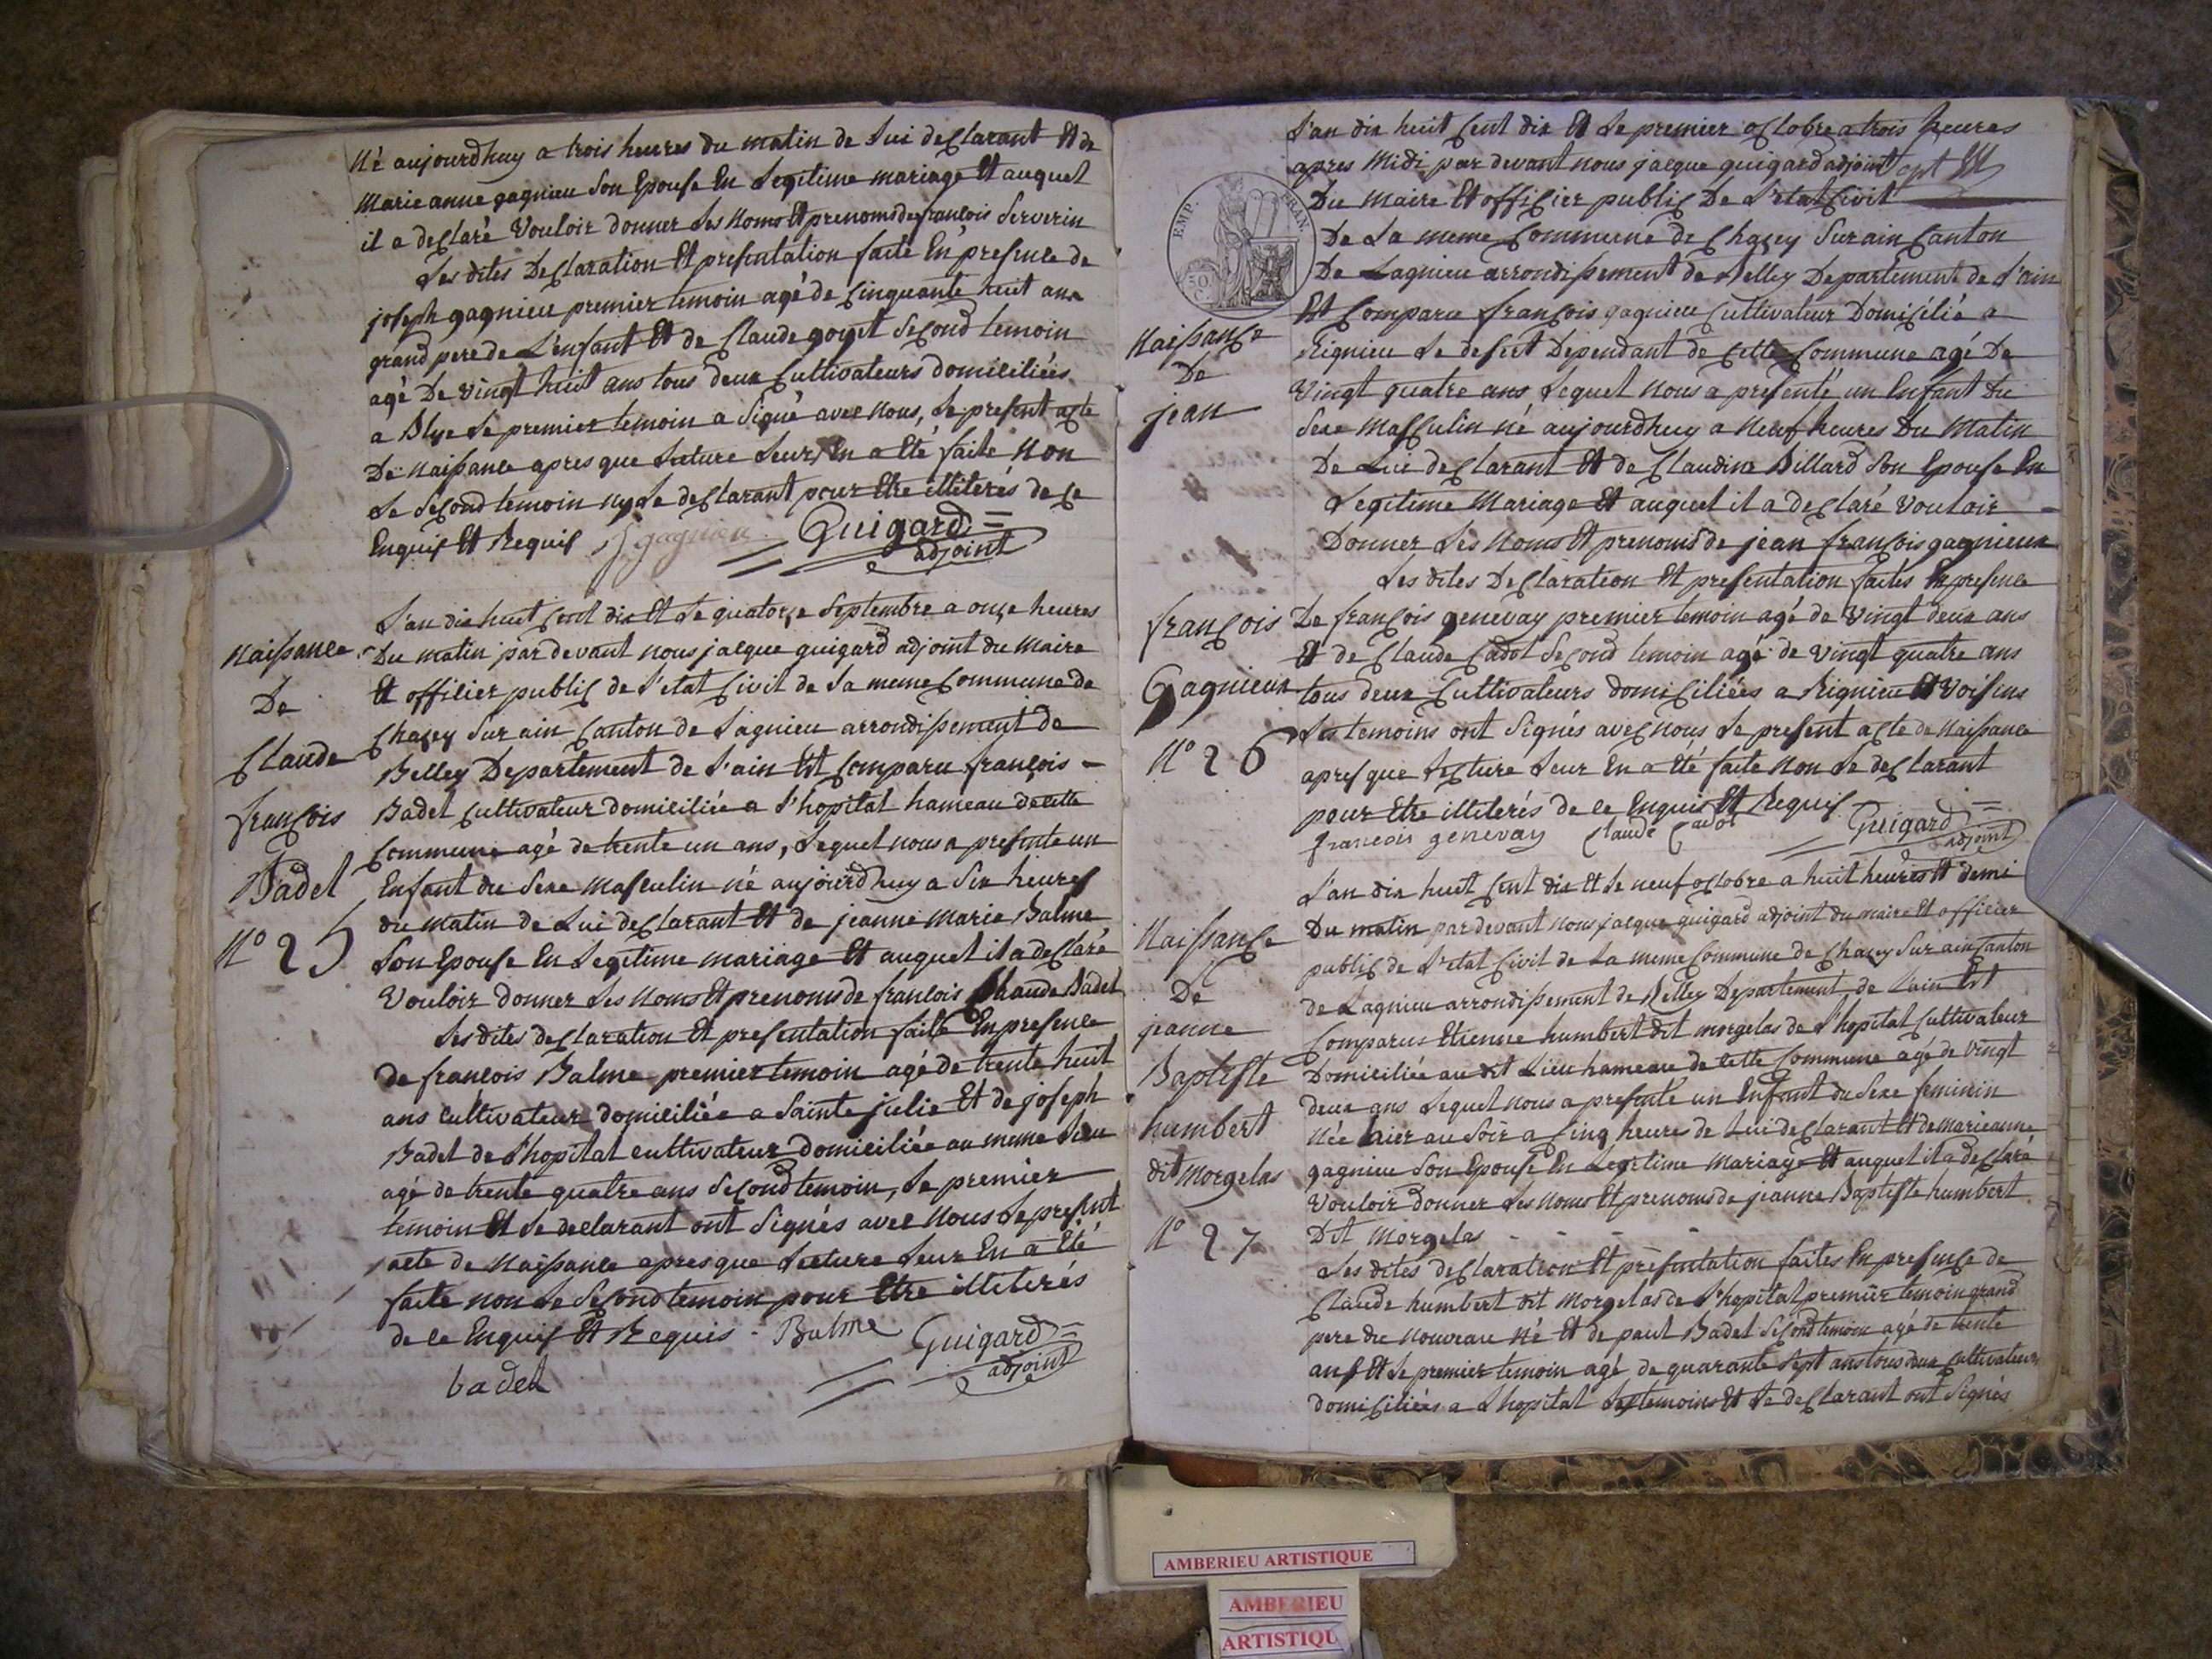 Né aujourdhuy a trois heures du matin de lui declarant Et de
Marie anne gagnieu Son Epouse En Legitime mariage Et auquel
il a declaré Vouloir donner Les Noms Et prenoms de francois Serverin
Les dites Declaration Et presentation faite En presence de
joseph gagnieu premier temoin agé de Cinquante huit ans
grand pere de L'enfant Et de Claude goyet Second temoin
agé De vingt huit ans tous deux Cultivateurs domiciliés
a Blye Le premier temoin a Signé avec nous, Le present acte
De Naissance apres que Lecture Leur En a Eté faite Non
Le Second temoin ny Le declarant pour Etre illiterés de Ce
Enquis Et Requis J gagnieu Guigard
adjoint
Naissance
De
Claude
françois
Badel
N° 25
L'an dix huit Cent dix Et Le quatorze Septembre a onze heures
Du matin par devant nous jacque guigard adjoint du Maire
Et officier public de L'etat Civil de La meme Commune de
Chazey Sur ain Canton de Lagnieu arrondissement de
Belley Departement de L'ain Est Comparu françois
Badel Cultivateur domiciliée a L'hopital hameau de cette
Commune agé de trente un ans, Lequel nous a presente un
Enfant du Sexe Masculin né aujourdhuy a Six heures
du matin de Lui declarant Et de jeanne Marie Balme
Son Epouse En Legitime mariage Et auquel il a declaré
Vouloir donner Les Noms Et prenoms de francois Claude Badel
Les dites declaration Et presentation faite En presence
de francois Balme premier temoin agé de trente huit
ans cultivateur domiciliée a Sainte julie Et de joseph
Badel de L'hopital cultivateur domiciliée au meme Lieu
agé de trente quatre ans Second temoin, Le premier
temoin Et Le declarant ont Signés avec Nous Le present
acte de Naissance apres que Lecture Leur En a Eté
faite non Le Second temoin pour Etre illiterés
de ce Enquis Et Requis - Balme Guigard
badel adjoint
EMP. FRAN.
L'an dix huit Cent dix Et Le premier octobre a trois heures
apres Midi par devant nous jacque guigard adjoint
Du Maire Et officier public De L'etat Civil
De La meme Commune de Chazey Sur ain Canton
De Lagnieu arrondissement de Belley Departement de L'ain
Est Comparu françois gagnieu Cultivateur Domicilié a
Rignieu Le desert Dependant de Cette Commune agé De
Vingt quatre ans Lequel Nous a presenté un Enfant Du
Sexe Masculin né aujourdhuy a Neuf heures Du Matin
De Lui declarant Et de Claudine Billard Son Epouse En
Legitime Mariage Et auquel il a declaré Vouloir
Donner Les Noms Et prenoms de jean françois gagnieux
Les dites Declaration Et presentation faites En presence
De françois genevay premier temoin agé de Vingt deux ans
Et de Claude Cadot Second temoin agé de Vingt quatre ans
tous deux Cultivateurs domiciliées a Rignieu Et Voisins
Les temoins ont Signés avec nous Le present acte de Naissance
apres que Lecture Leur En a Eté faite Non Le declarant
pour Etre illiterés de ce Enquis Et Requis
francois genevay Claude Cadot Guigard
adjoint
Naissance
De
jean
françois
Gagnieux
N° 26
L'an dix huit Cent dix Et Le neuf octobre a huit heures Et demi
Du matin par devant nous jacque guigard adjoint du maire Et officier
public de L'etat Civil de La meme Commune de Chazey Sur ain Canton
de Lagnieu arrondissement de Belley Departement de Lain Est
Comparus Etienne humbert dit morgelas de L'hopital Cultivateur
Domiciliée au dit Lieu hameau de Cette Commune agé de Vingt
deux ans Lequel nous a presente un Enfant du Sexe feminin
Née hier au Soir a Cinq heures de Lui declarant Et de marie anne
gagnieu Son Epouse En Legitime Mariage Et auquel il a declaré
Vouloir donner Les Noms Et prenoms de jeanne Baptiste humbert
Dit Morgelas
Les dites declaration Et presentation faites En presence de
Claude humbert dit Morgelas de L'hopital premier temoin grand
pere du Nouveau Né Et de paul Badel Second temoin agé de trente
ans Et Le premier temoin agé de quarante Sept ans tous deux Cultivateurs
domiciliées a L'hopital Les temoins Et Le declarant ont Signés
Naissance
De
jeanne
Baptiste
humbert
dit Morgelas
N° 27
AMBERIEU ARTISTIQUE
AMBERIEU
ARTISTIQU